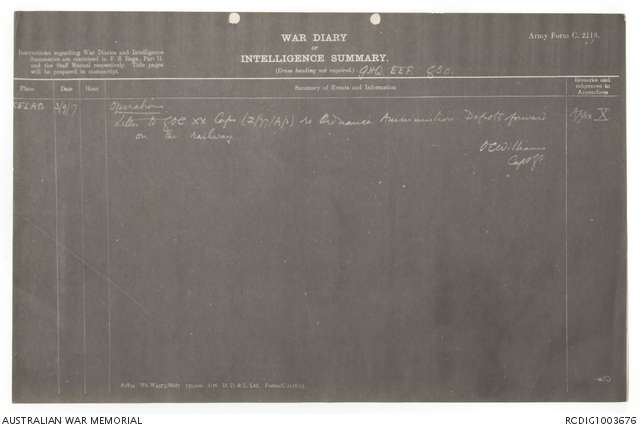 WAR DIARY
or
INTELLIGENCE SUMMARY.
(Erase heading not required.) GHQ EEF
Army Form C. 2118.
Instructions regarding War Diaries and Intelligence
Summaries are contained in F. S. Regs., Part II.
and the Staff Manual respectively. Title pages
will be prepared in manuscript.
Place Date Hour Summary of Events and Information Remarks and references to Appendices
Operations
Letter to GOC XX Corps re Ordnance Ammunition Depots forward X
on the railway.
OEWilliams
Capt
D. D. & L. Ltd.
AUSTRALIAN WAR MEMORIAL
RCDIG1003676